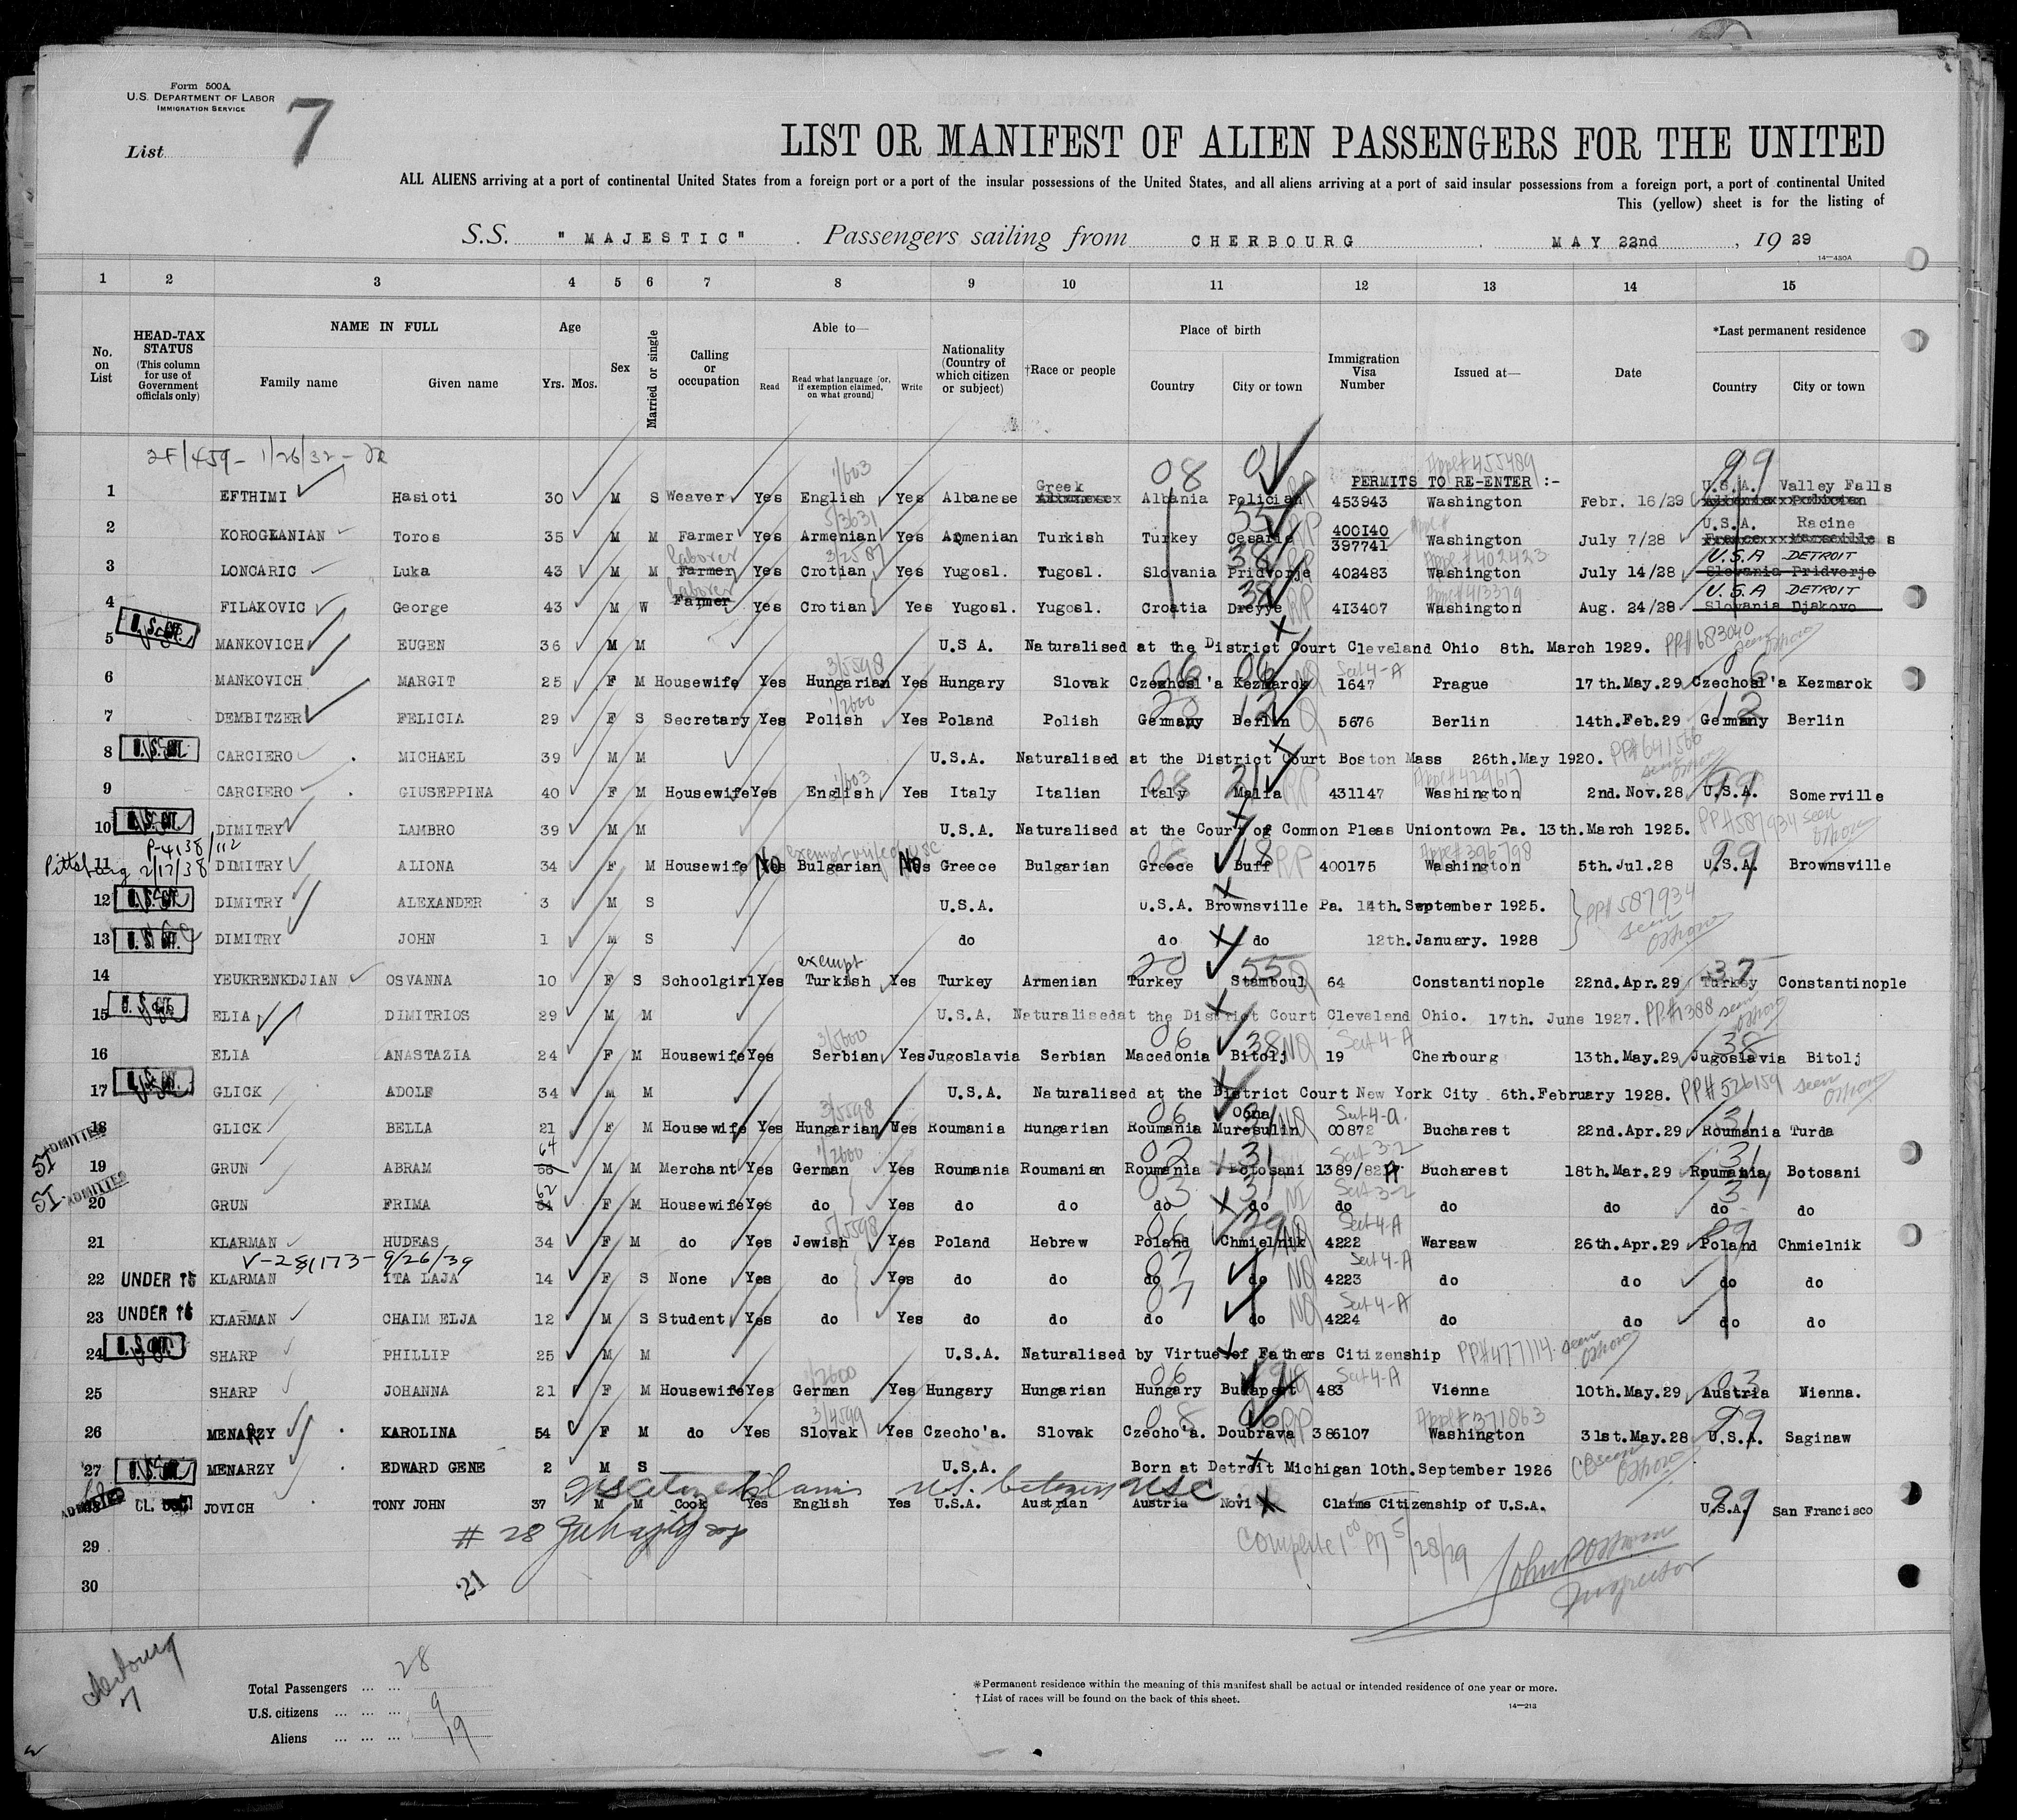 Form 500A
U.S. DEPARTMENT OF LABOR
IMMIGRATION SERVICE
List 7
LIST OR MANIFEST OF ALIEN PASSENGERS FOR THE UNITED
ALL ALIENS arriving at a port of continental United States from a foreign port or a port of the insular possessions of the United States, and all aliens arriving at a port of said insular possessions from a foreign port, a port of continental United
This (yellow) sheet is for the listing of
S.S. "MAJESTIC" . Passengers sailing from CHERBOURG . MAY 22nd , 19 29
14—430A
1 2 3 4 5 6 7 8 9 10 11 12 13 14 15
No. on List HEAD-TAX STATUS (This column for use of Government officials only) NAME IN FULL Family name Given name Age Yrs. Mos. Sex Married or single Calling or occupation Able to— Read Read what language [or, if exemption claimed, on what ground] Write Nationality (Country of which citizen or subject) †Race or people Place of birth Country City or town Immigration Visa Number Issued at— Date *Last permanent residence Country City or town
2F/459 - 1/26/32 -
1/603 08 Appl# 455489 99
Greek PERMITS TO RE-ENTER :- U.S.A. Valley Falls
1 EFTHIMI Hasioti 30 M S Weaver Yes English Yes Albanese Albania Polician RP 453943 Washington Febr. 16/29
5/3631 55 RP 400140 U.S.A. Racine
2 KOROGLANIAN Toros 35 M M Farmer Yes Armenian Yes Armenian Turkish Turkey Cesaria 397741 Washington July 7/28 France Marseille s
Laborer 3/2587 38 RP Appl# 402423 U.S.A DETROIT
3 LONCARIC Luka 43 M M Farmer Yes Crotian Yes Yugosl. Yugosl. Slovania Pridvorje 402483 Washington July 14/28 Slovania Pridvorje
Laborer 38 RP Appl# 413379 U.S.A DETROIT
4 FILAKOVIC George 43 M W Farmer Yes Crotian Yes Yugosl. Yugosl. Croatia Dreyye 413407 Washington Aug. 24/28 Slovania Djakovo
5 U.S. CIT. MANKOVICH EUGEN 36 M M U.S A. Naturalised at the District Court Cleveland Ohio 8th. March 1929. PP# 683040 seen
3/5598 06 06 NQ Sect 4-A 06
6 MANKOVICH MARGIT 25 F M Housewife Yes Hungarian Yes Hungary Slovak Czechosl'a Kezmarok 1647 Prague 17th.May.29 Czechosl'a Kezmarok
1/2600 12 Q 12
7 DEMBITZER FELICIA 29 F S Secretary Yes Polish Yes Poland Polish Germany Berlin 5676 Berlin 14th.Feb.29 Germany Berlin
8 U.S. CIT. CARCIERO MICHAEL 39 M M U.S.A. Naturalised at the District Court Boston Mass 26th.May 1920. PP# 641566 seen
1/603 08 21 RP Appl# 429617 99
9 CARCIERO GIUSEPPINA 40 F M Housewife Yes English Yes Italy Italian Italy Malfa 431147 Washington 2nd. Nov.28 U.S.A. Somerville
10 U.S. CIT. DIMITRY LAMBRO 39 M M U.S.A. Naturalised at the Court of Common Pleas Uniontown Pa. 13th.March 1925. PP# 587934 seen
P-4138/112 exempt wife of USC 18 RP Appl# 396798 99
Pittsburg 2/17/38 11 DIMITRY ALIONA 34 F M Housewife No Bulgarian No Greece Bulgarian Greece Buff 400175 Washington 5th.Jul.28 U.S.A. Brownsville
12 U.S. CIT. DIMITRY ALEXANDER 3 M S U.S.A. U.S.A. Brownsville Pa. 14th.September 1925. PP# 587934 seen
13 U.S. CIT. DIMITRY JOHN 1 M S do do do 12th.January. 1928
exempt 20 55 Q 37
14 YEUKRENKDJIAN OSVANNA 10 F S Schoolgirl Yes Turkish Yes Turkey Armenian Turkey Stamboul 64 Constantinople 22nd.Apr.29 Turkey Constantinople
15 U.S. CIT. ELIA DIMITRIOS 29 M M U.S.A. Naturalisedat the District Court Cleveland Ohio. 17th. June 1927. PP# 1388 seen
3/5600 06 38 NQ Sect 4-A 38
16 ELIA ANASTAZIA 24 F M Housewife Yes Serbian Yes Jugoslavia Serbian Macedonia Bitolj 19 Cherbourg 13th.May.29 Jugoslavia Bitolj
17 U.S. CIT. GLICK ADOLF 34 M M U.S.A. Naturalised at the District Court New York City 6th.February 1928. PP# 526159 seen
3/5598 06 31 Oona NQ Sect 4-a. 31
18 GLICK BELLA 21 F M Housewife Yes Hungarian Yes Roumania Hungarian Roumania Muresulin 00872 Bucharest 22nd.Apr.29 Roumania Turda
SI ADMITTED 64 1/2600 02 31 Sect 3-2 31
19 GRUN ABRAM M M Merchant Yes German Yes Roumania Roumanian Roumania Botosani 1389/82 A Bucharest 18th.Mar.29 Roumania Botosani
SI ADMITTED 62 03 31 Sect 3-2
20 GRUN FRIMA F M Housewife Yes do Yes do do do do do do do do do
5/5598 06 29 NQ Sect 4-A 29
21 KLARMAN HUDEAS 34 F M do Yes Jewish Yes Poland Hebrew Poland Chmielnik 4222 Warsaw 26th.Apr.29 Poland Chmielnik
V-281173 - 9/26/39 07 NQ Sect 4-A
22 UNDER 16 KLARMAN ITA LAJA 14 F S None Yes do Yes do do do do 4223 do do do do
07 NQ Sect 4-A
23 UNDER 16 KLARMAN CHAIM ELJA 12 M S Student Yes do Yes do do do do 4224 do do do do
24 U.S. CIT. SHARP PHILLIP 25 M M U.S.A. Naturalised by Virtue of Fathers Citizenship PP# 477114 seen
1/2600 06 NQ Sect 4-A 03
25 SHARP JOHANNA 21 F M Housewife Yes German Yes Hungary Hungarian Hungary Budapest 483 Vienna 10th.May.29 Austria Wienna.
3/4599 08 06 RP Appl# 371863 99
26 MENARZY KAROLINA 54 F M do Yes Slovak Yes Czecho'a. Slovak Czecho'a. Doubrava 386107 Washington 31st.May.28 U.S.A. Saginaw
27 U.S. CIT. MENARZY EDWARD GENE 2 M S U.S.A. Born at Detroit Michigan 10th.September 1926 CB seen
claims U.S. Citizen USC 99
ADMITTED CL. JOVICH TONY JOHN 37 M M Cook Yes English Yes U.S.A. Austrian Austria Novi Claims Citizenship of U.S.A. U.S.A. San Francisco
# 28
29 Complete 1 00 PM 5/28/29
30 21 Inspector
Cherbourg 7
Total Passengers ... ... 28
U.S. citizens ... ... ... 9
Aliens ... ... ... 19
*Permanent residence within the meaning of this manifest shall be actual or intended residence of one year or more.
†List of races will be found on the back of this sheet.
14—213